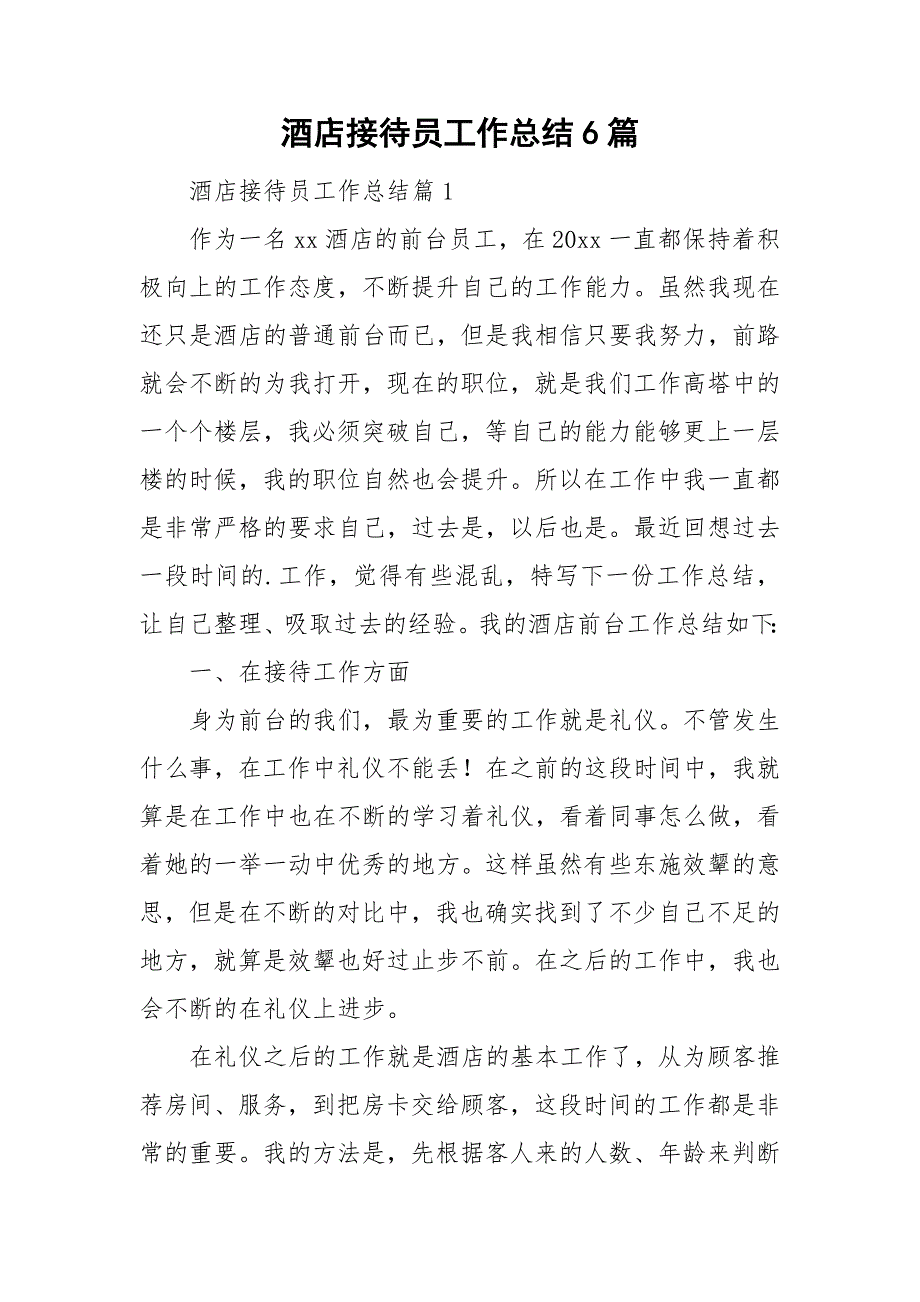 酒店接待员工作总结6篇
酒店接待员工作总结篇1
作为一名xx酒店的前台员工，在20xx一直都保持着积
极向上的工作态度，不断提升自己的工作能力。虽然我现在
还只是酒店的普通前台而已，但是我相信只要我努力，前路
就会不断的为我打开，现在的职位，就是我们工作高塔中的
一个个楼层，我必须突破自己，等自己的能力能够更上一层
楼的时候，我的职位自然也会提升。所以在工作中我一直都
是非常严格的要求自己，过去是，以后也是。最近回想过去
一段时间的.工作，觉得有些混乱，特写下一份工作总结，
让自己整理、吸取过去的经验。我的酒店前台工作总结如下：
一、在接待工作方面
身为前台的我们，最为重要的工作就是礼仪。不管发生
什么事，在工作中礼仪不能丢！在之前的这段时间中，我就
算是在工作中也在不断的学习着礼仪，看着同事怎么做，看
着她的一举一动中优秀的地方。这样虽然有些东施效颦的意
思，但是在不断的对比中，我也确实找到了不少自己不足的
地方，就算是效颦也好过止步不前。在之后的工作中，我也
会不断的在礼仪上进步。
在礼仪之后的工作就是酒店的基本工作了，从为顾客推
荐房间、服务，到把房卡交给顾客，这段时间的工作都是非
常的重要。我的方法是，先根据客人来的人数、年龄来判断